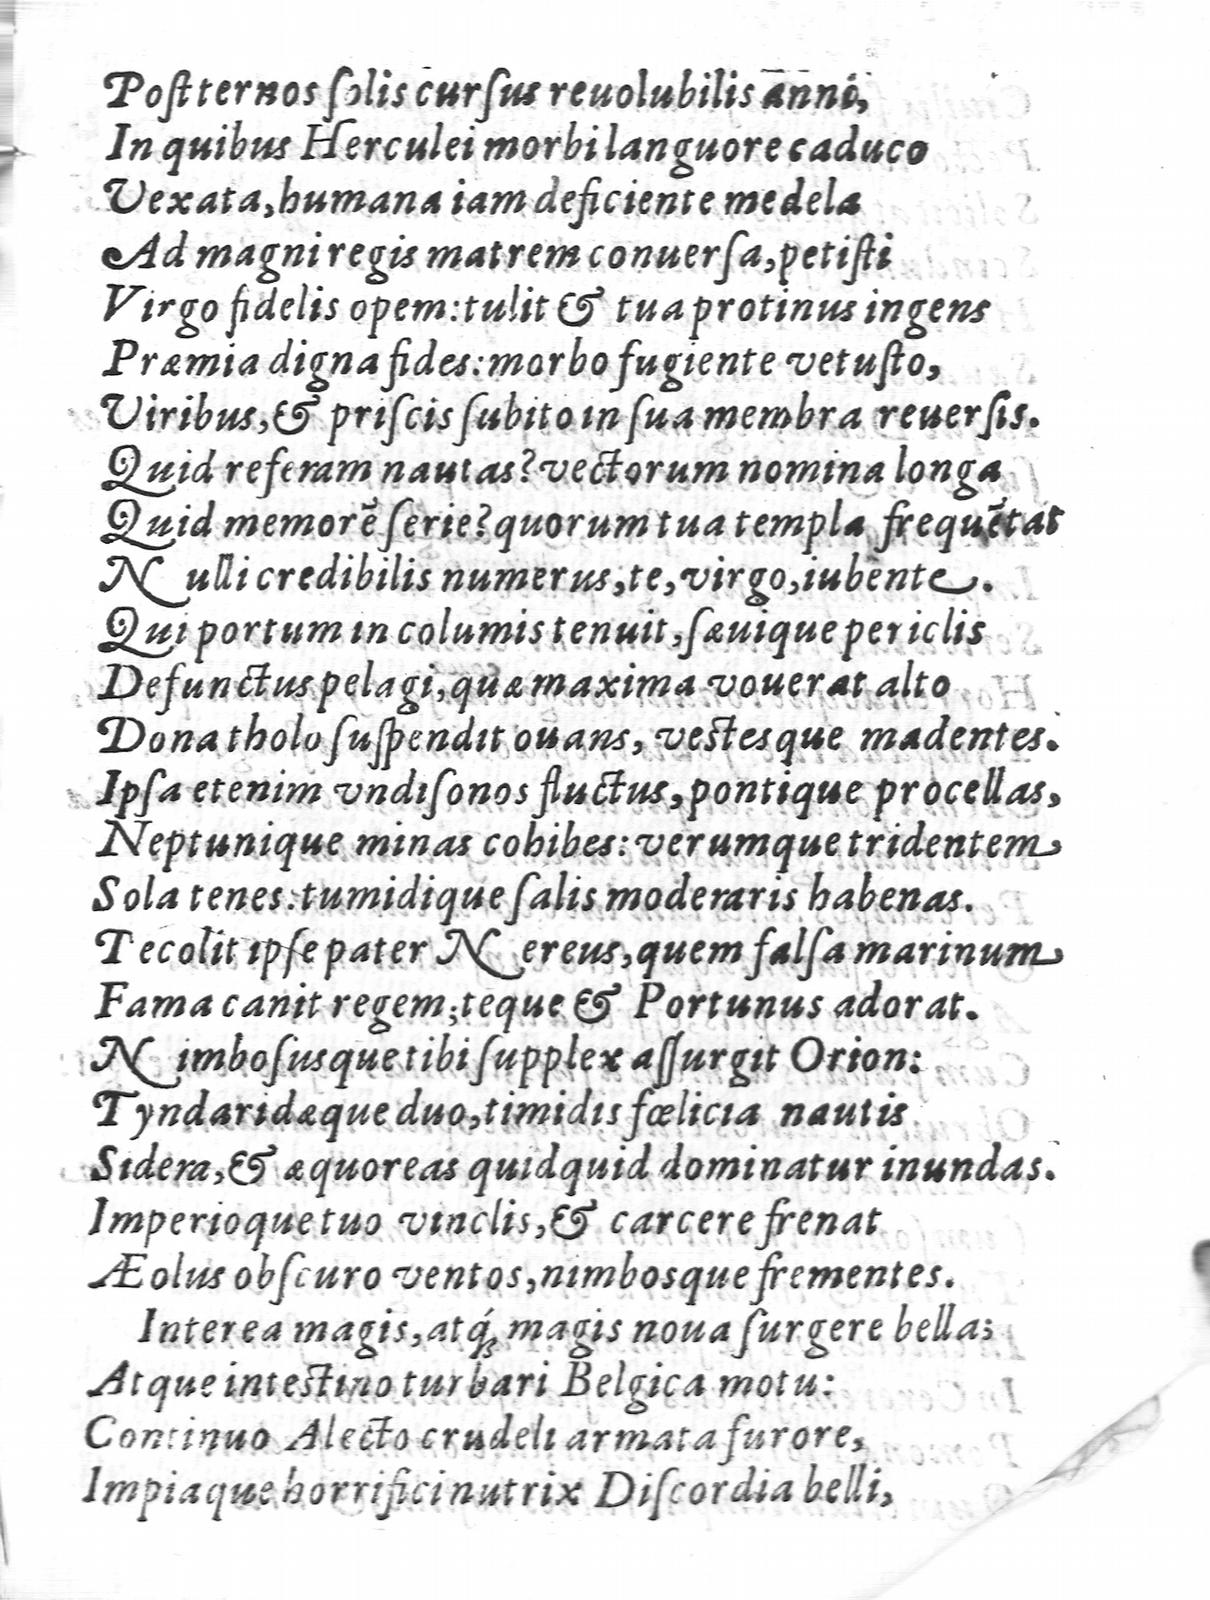 Poſt ternos ſolis curſus reuolubilis anni,
In quibus Herculei morbi languore caduco
Vexata, humana iam deficiente medela
Ad magni regis matrem conuerſa, petiſti
Virgo fidelis opem: tulit & tua protinus ingens
Præmia digna fides: morbo fugiente vetuſto,
Viribus, & priſcis ſubito in ſua membra reuerſis.
Quid referam nautas? vectorum nomina longa
Quid memorē ſerie? quorum tua templa frequētat
Nulli credibilis numerus, te, virgo, iubente.
Qui portum in columis tenuit, ſæuique periclis
Defunctus pelagi, quæ maxima vouerat alto
Dona tholo ſuſpendit ouans, vestesque madentes.
Ipſa etenim vndiſonos fluctus, pontique procellas,
Neptunique minas cohibes: verumque tridentem
Sola tenes: tumidique ſalis moderaris habenas.
Te colit ipſe pater Nereus, quem falſa marinum
Fama canit regem; teque & Portunus adorat.
Nimboſusque tibi ſupplex aſſurgit Orion:
Tyndaridæque duo, timidis fœlicia nautis
Sidera, & æquoreas quidquid dominatur in undas.
Imperioque tuo vinclis, & carcere frenat
Æolus obſcuro ventos, nimbosque frementes.
Interea magis, atq́ꝫ magis noua ſurgere bella;
Atque intestino turbari Belgica motu:
Continuo Alecto crudeli armata furore,
Impiaque horrifici nutrix Diſcordia belli,